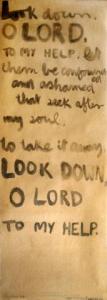 Look down,
O LORD.
TO MY HELP. Let
them be confounded
and ashamed
that seek after
my soul.
to take it away.
LOOK DOWN,
O LORD
TO MY HELP.